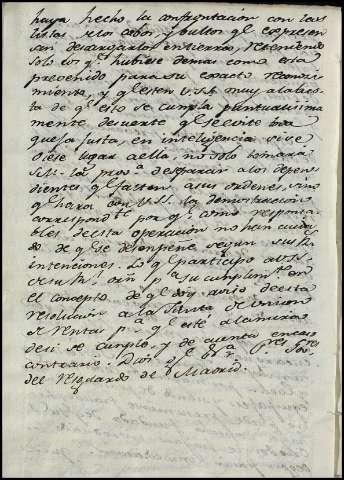 haya hecho la confrontacion con las
listas de los cabos, y bultos qe expresen
sean descargarlos en tierra, reteniendo
solo los qe hubiese demas como está
prevenido para su exacto reconoci-
miento, y qe esten V.SS. muy a la vis-
ta de qe esto se cumpla puntualisima
mente de suerte qe se evite toda
queja justa, en inteligencia si se
diese lugar a ella, no solo tomará
S.M. la prova de separar a los depen-
dientes qe falten a sus ordenes, sino
qe hará con V.SS. la demostracion
correspondte por qe como responsa-
bles de esta operacion no han cuida-
do de qe se desempeñe segun sus Rs
intenciones. Lo qe participo a V.SS.
de su Rl orn pa su cumplimto en
el concepto de qe doy aviso de esta
resolucion a la Junta de Union
de Rentas pa qe este a la mira
de si se cumple, y de cuenta en caso
contrario. Dios gue &a Sres Gres
del resguardo de Madrid.